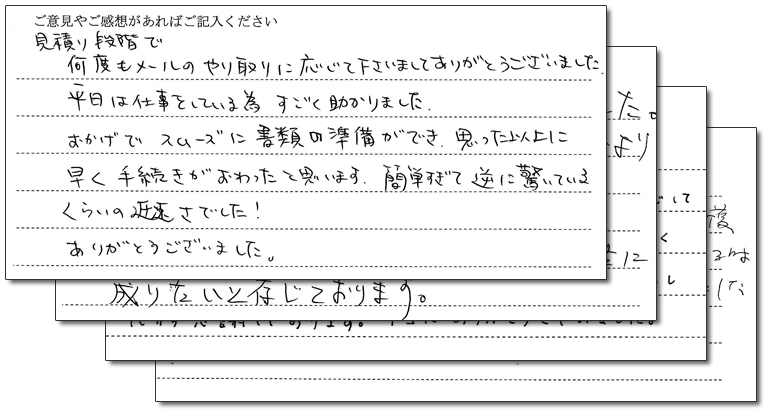 ご意見やご感想があればご記入ください
見積り段階で
何度もメールのやり取りに応じて下さいましてありがとうございました.
平日は仕事をしている為 すごく助かりました.
おかげで スムーズに書類の準備ができ. 思った以上に
早く手続きがおわったと思います. 簡単すぎて逆に驚いている
くらいの迅速さでした!
ありがとうございました。
た。
より
に
成りたいと存じております。
して
く
し
後
では
した